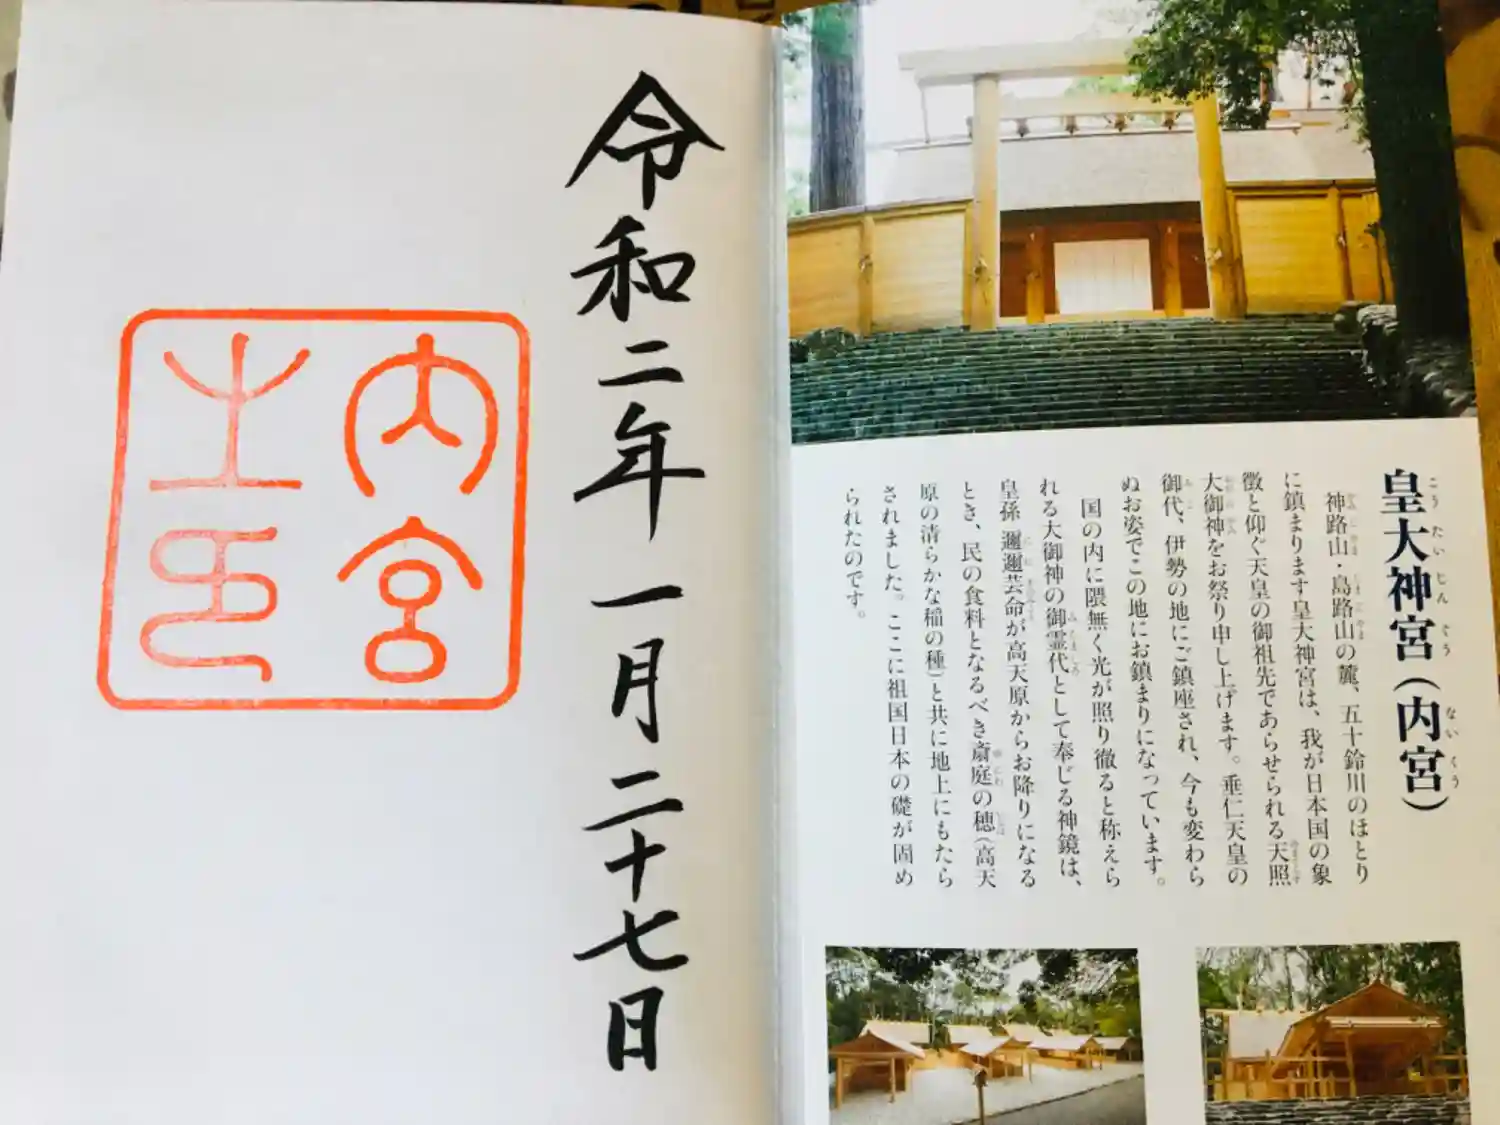 皇大神宮(内宮)
こうたいじんぐう ないくう
神路山・島路山の麓、五十鈴川のほとり
に鎮まります皇大神宮は、我が日本国の象
徴と仰ぐ天皇の御祖先であらせられる天照
大御神をお祭り申し上げます。垂仁天皇の
御代、伊勢の地にご鎮座され、今も変わら
ぬお姿でこの地にお鎮まりになっています。
国の内に隈無く光が照り徹ると称えら
れる大御神の御霊代として奉じる神鏡は、
皇孫邇邇芸命が高天原からお降りになる
とき、民の食料となるべき斎庭の穂(高天
原の清らかな稲の種)と共に地上にもたら
されました。ここに祖国日本の礎が固め
られたのです。
令和二年一月二十七日
内宮
之印